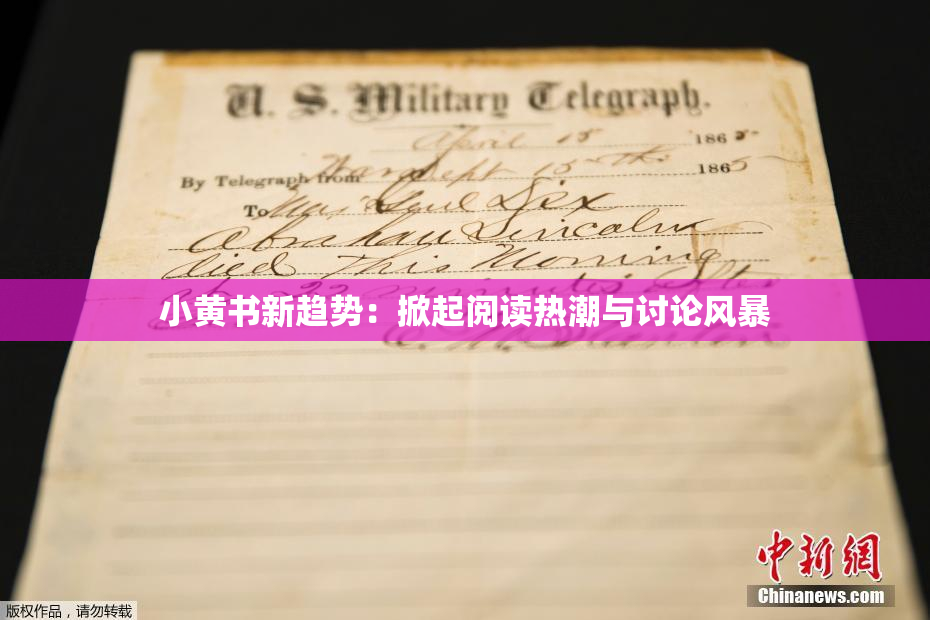 U. S. Military Telegraph.
April 15 1865
By Telegraph from War Dept 15th 1865
To Maj Genl Dix
Abraham Lincoln
died This Morning
at 22 minutes after
小黄书新趋势：掀起阅读热潮与讨论风暴
E. M. Stanton
中新网
Chinanews.com
版权作品，请勿转载